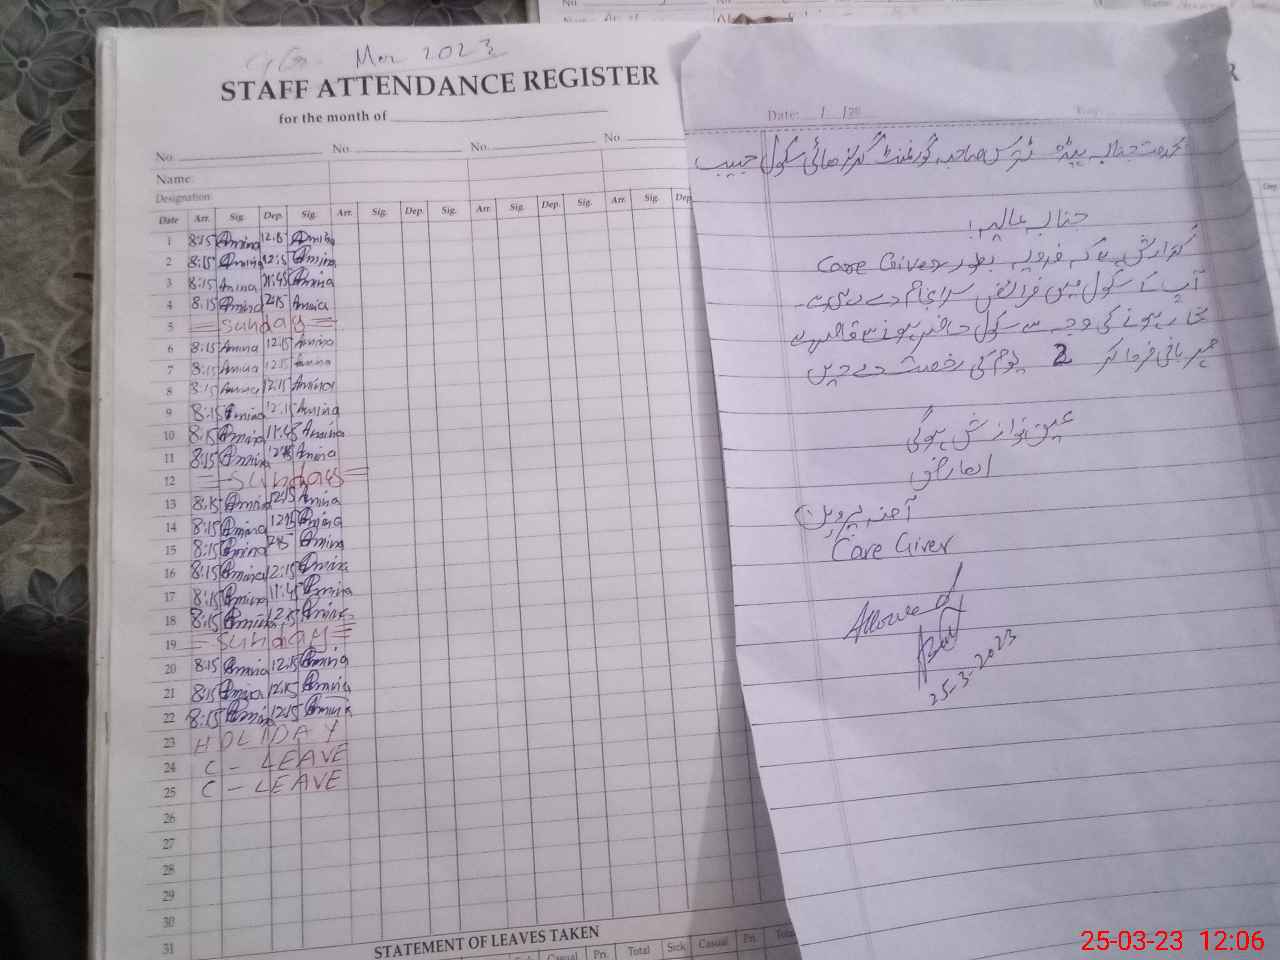 Mar 2023
STAFF ATTENDANCE REGISTER
for the month of
No. No. No. No.
Name:
Designation:
Date Arr. Sig. Dep. Sig. Arr. Sig. Dep. Sig. Arr. Sig. Dep. Sig. Arr. Sig. Dep
1 8:15 Amina 12:15 Amina
2 8:15 Amina 12:15 Amina
3 8:15 Amina 11:45 Amina
4 8:15 Amina 12:15 Amina
5 = Sunday =
6 8:15 Amina 12:15 Amina
7 8:15 Amina 12:15 Amina
8 8:15 Amina 12:15 Amina
9 8:15 Amina 12:15 Amina
10 8:15 Amina 11:45 Amina
11 8:15 Amina 12:15 Amina
12 = Sunday =
13 8:15 Amina 12:15 Amina
14 8:15 Amina 12:15 Amina
15 8:15 Amina 12:15 Amina
16 8:15 Amina 12:15 Amina
17 8:15 Amina 11:45 Amina
18 8:15 Amina 12:15 Amina
19 = Sunday =
20 8:15 Amina 12:15 Amina
21 8:15 Amina 12:15 Amina
22 8:15 Amina 12:15 Amina
23 HOLIDAY
24 C - LEAVE
25 C - LEAVE
26
27
28
29
30
31
STATEMENT OF LEAVES TAKEN
Casual Pri. Total Sick Casual Pri. Total
Date: / /20
بخدمت جناب ہیڈ مسٹرس صاحبہ گورنمنٹ گرلز ہائی سکول حبیب
جناب عالیہ!
گزارش ہے کہ فدویہ بطور Care Giver
آپ کے سکول میں فرائض سرانجام دے رہی ہے۔
بخار ہونے کی وجہ سے سکول حاضر ہونے سے قاصر ہے
مہربانی فرما کر 2 یوم کی رخصت دے دیں
عین نوازش ہوگی
العارض
آمنہ پروین
Care Giver
Allowed
25-3-2023
25-03-23 12:06